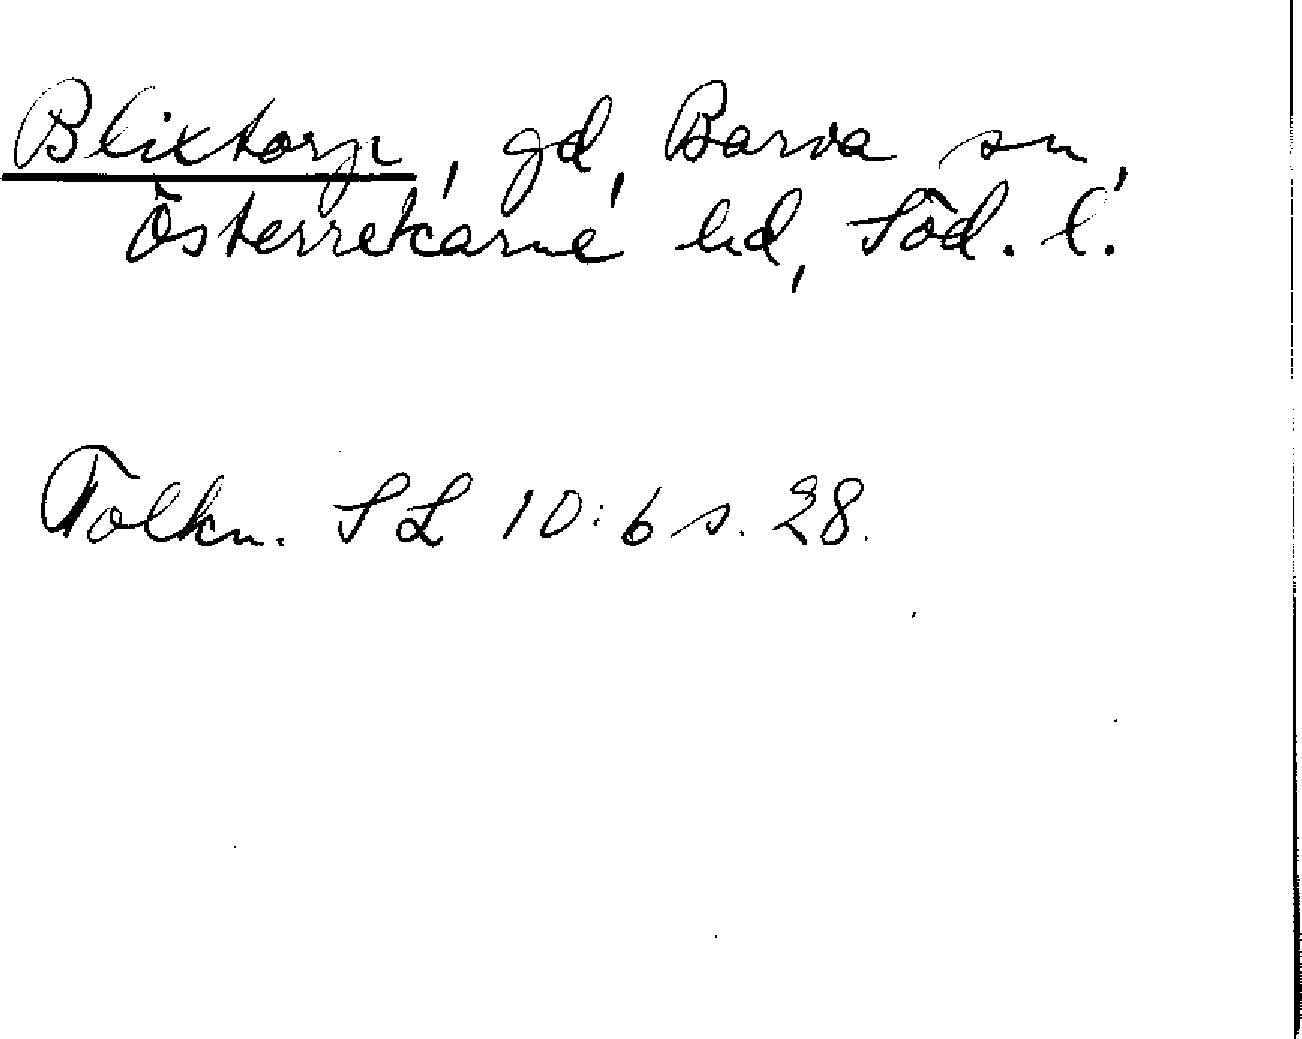 Blixtorp, gd, Barva sn,
Österrekarne hd, Söd. l.
Tolkn. SL 10:6 s. 28.